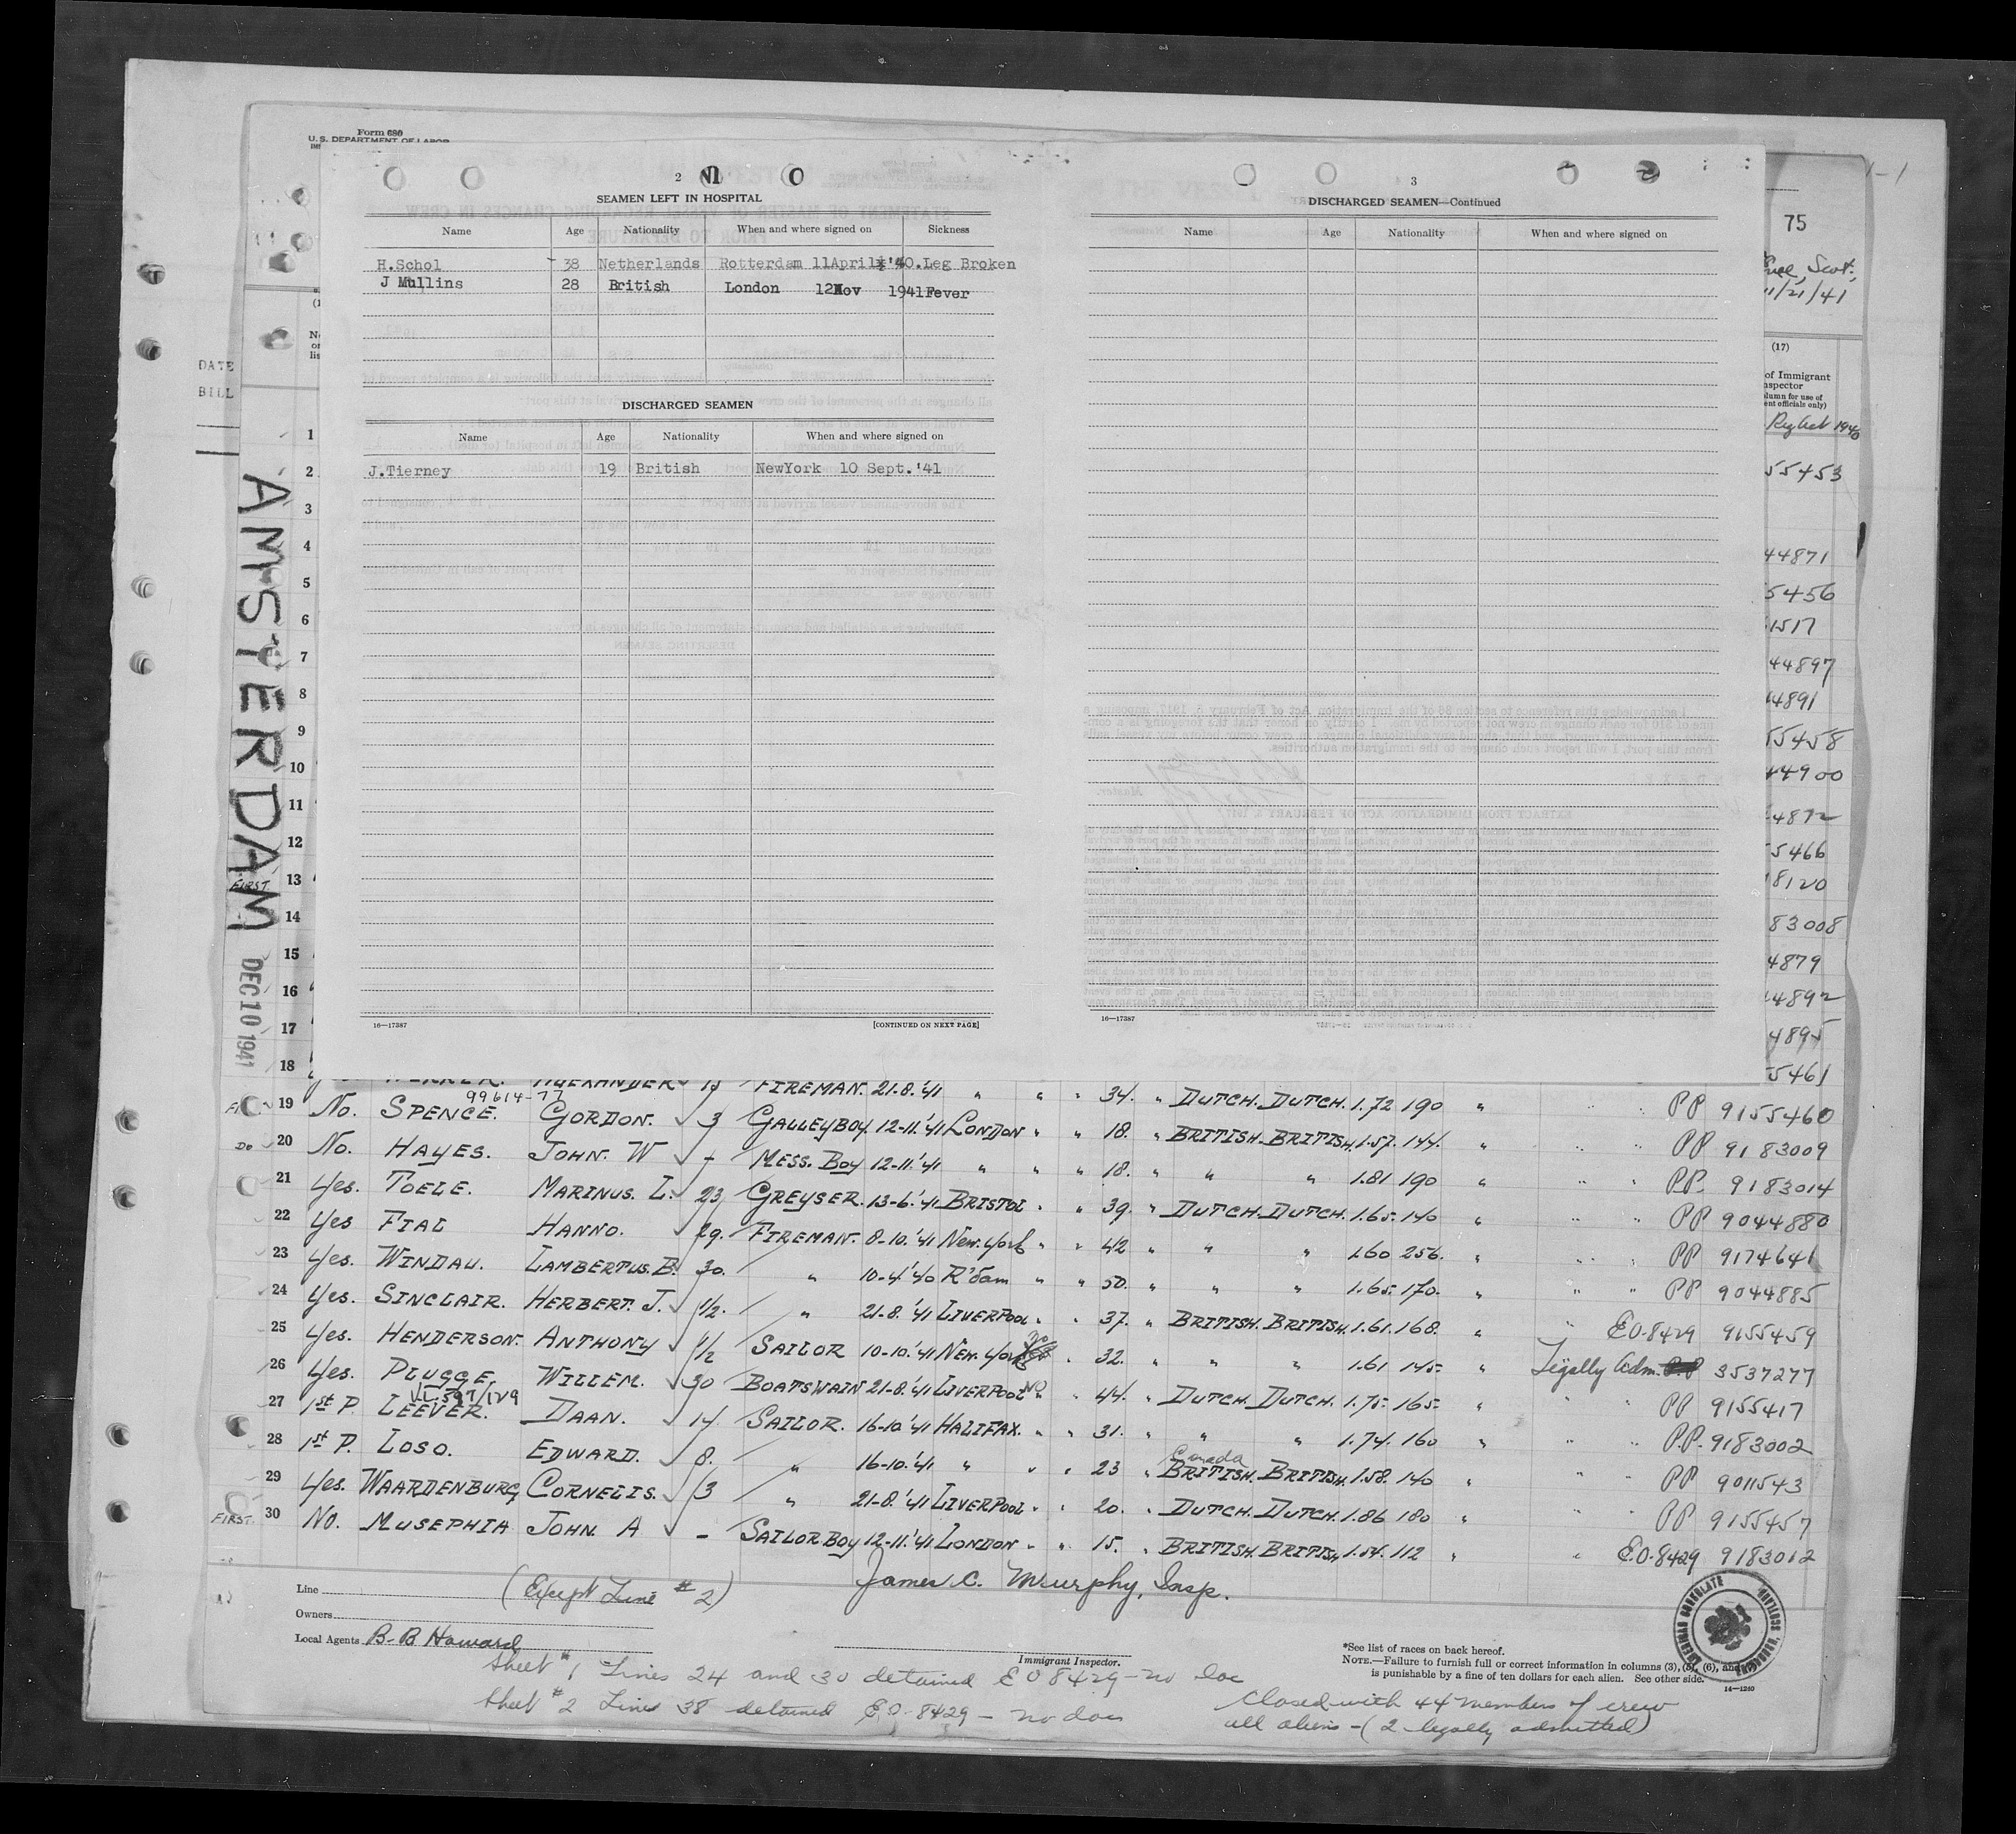 Form 680
U.S. DEPARTMENT OF LABOR
2
SEAMEN LEFT IN HOSPITAL
Name Age Nationality When and where signed on Sickness
H.Schol 38 Netherlands Rotterdam 11April '40. Leg Broken
J Mullins 28 British London 12Nov 1941 Fever
DISCHARGED SEAMEN
Name Age Nationality When and where signed on
J.Tierney 19 British NewYork 10 Sept.'41
16—17387 [CONTINUED ON NEXT PAGE]
3
DISCHARGED SEAMEN—Continued
Name Age Nationality When and where signed on
16—17387
75
Scot.,
11/21/41
(17)
of Immigrant
column for use of
ent officials only)
1940
55453
44871
5456
1517
44897
4891
55458
44900
4872
5466
8120
83008
4879
4892
4895
5461
DATE
BILL
AMSTERDAM
DEC 10 1941
FIRST.
1
2
3
4
5
6
7
8
9
10
11
12
13
14
15
16
17
18
ALEXANDER FIREMAN. 21-8.'41 " " " 34. " DUTCH. DUTCH. 1.72 190 " PP 9155460
99614-77
19 No. SPENCE. GORDON. 3 GALLEYBOY. 12-11.'41 LONDON " " 18. " BRITISH. BRITISH. 1.57. 144. " PP 9183009
Do 20 No. HAYES. JOHN. W - MESS. BOY 12-11.'41 " " " 18. " " " 1.81 190 " P.P. 9183014
21 Yes. TOELE. MARINUS. L. 23 GREYSER. 13-6.'41 BRISTOL " " 39. " DUTCH. DUTCH. 1.65. 140 " PP 9044880
22 Yes FIAL HANNO. 29. FIREMAN. 8-10.'41 New York " " 42 " " " 1.60 256. " PP 9174641
23 Yes. WINDAU. LAMBERTUS. B. 30. " 10-4'40 R'dam " " 50. " " " 1.65. 170. " PP 9044885
24 Yes. SINCLAIR. HERBERT. J. 1/2. " 21-8.'41 LIVERPOOL " " 37. " BRITISH. BRITISH. 1.61. 168. " " E.O.8429 9155459
25 Yes. HENDERSON. ANTHONY 1/2 SAILOR 10-10.'41 New York no " 32. " " " 1.61 145- " Legally Adm. 3537277
26 Yes. PLUGGE. WILLEM. 30 BOATSWAIN 21-8.'41 LIVERPOOL NO " 44. " DUTCH. DUTCH. 1.75- 165- " PP 9155417
27 1st P. LEEVER. DAAN. 14. SAILOR. 16-10'41 HALIFAX. " " 31. " " " 1.74. 160 " P.P. 9183002
Canada
28 1st P. LOSO. EDWARD. 8. " 16-10.'41 " " " 23 " BRITISH. BRITISH. 1.58. 140 " PP 9011543
29 Yes. WAARDENBURG CORNELIS. 3 " 21-8.'41 LIVERPOOL " " 20. " DUTCH. DUTCH. 1.86 180 " PP 9155457
FIRST. 30 NO. MUSEPHIA JOHN. A - SAILOR BOY 12-11.'41 LONDON " " 15. " BRITISH. BRITISH. 1.54. 112 " " E.O.8429 9183012
Line (Except Line # 2) James C. Murphy, Insp.
Owners
Local Agents B-B Howard
Immigrant Inspector.
*See list of races on back hereof.
NOTE.—Failure to furnish full or correct information in columns (3), (5), (6), and
is punishable by a fine of ten dollars for each alien. See other side.
14—1240
Sheet #1 Lines 24 and 30 detained E O 8429—no doc
Sheet #2 Lines 38 detained E.O. 8429 — no docs
Closed with 44 members of crew
all aliens —(2 legally admitted)
AMERICAN CONSULATE